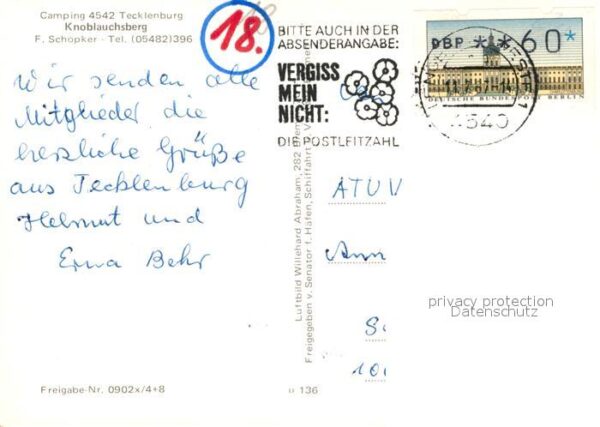 Camping 4542 Tecklenburg
Knoblauchsberg
F. Schopker - Tel. (05482)396
18.
Wir senden alle
Mitglieder die
herzliche Grüße
aus Tecklenburg
Helmut und
Erna Behr
Freigabe-Nr. 0902x/4+8
BITTE AUCH IN DER
ABSENDERANGABE:
VERGISS
MEIN
NICHT:
DIE POSTLEITZAHL
DBP ** 60*
DEUTSCHE BUNDESPOST BERLIN
4540
Luftbild Willehard Abraham, 282
Freigegeben v. Senator f. Häfen, Schiffahrt u. V
ATUV
privacy protection
Datenschutz
u 136